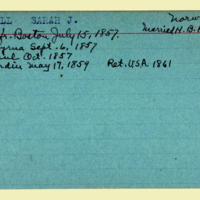 LL SARAH J. Norw
Married H. B. H
fr. Boston July 15, 1857
yrna Sept. 6, 1857
bul Oct. 1857
rdin May 17, 1859 Ret. USA 1861